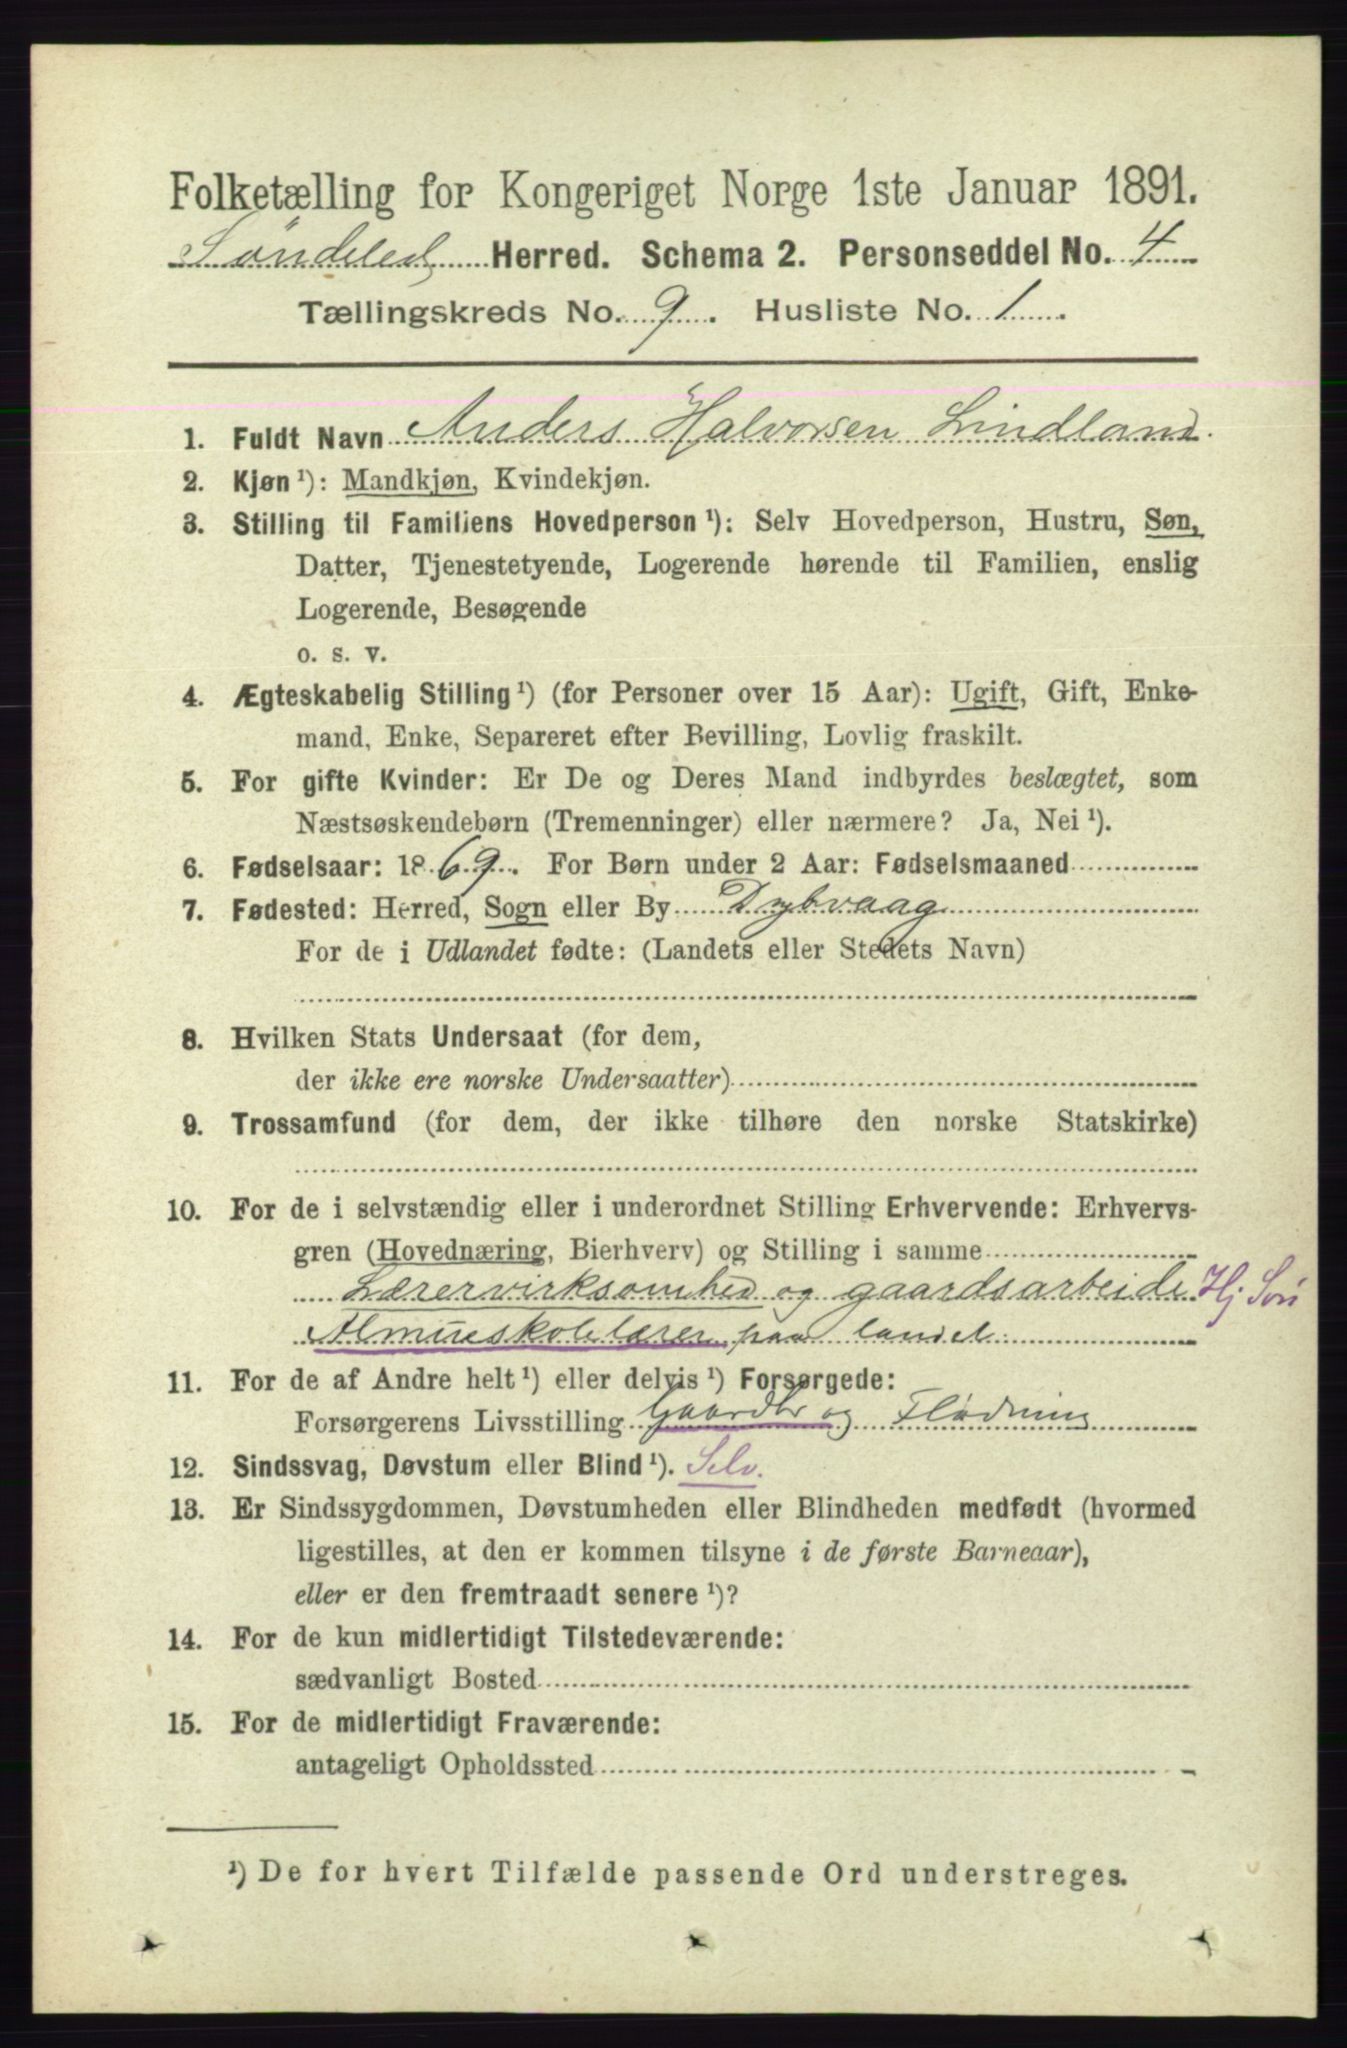 Folketælling for Kongeriget Norge 1ste Januar 1891.
Søndeled Herred. Schema 2. Personseddel No. 4
Tællingskreds No. 9. Husliste No. 1.
1. Fuldt Navn Anders Halvorsen Lindland.
2. Kjøn ¹): Mandkjøn, Kvindekjøn.
3. Stilling til Familiens Hovedperson ¹): Selv Hovedperson, Hustru, Søn,
Datter, Tjenestetyende, Logerende hørende til Familien, enslig
Logerende, Besøgende
o. s. v.
4. Ægteskabelig Stilling ¹) (for Personer over 15 Aar): Ugift, Gift, Enke-
mand, Enke, Separeret efter Bevilling, Lovlig fraskilt.
5. For gifte Kvinder: Er De og Deres Mand indbyrdes beslægtet, som
Næstsøskendebørn (Tremenninger) eller nærmere? Ja, Nei ¹).
6. Fødselsaar: 1869. For Børn under 2 Aar: Fødselsmaaned
7. Fødested: Herred, Sogn eller By Dybvaag
For de i Udlandet fødte: (Landets eller Stedets Navn)
8. Hvilken Stats Undersaat (for dem,
der ikke ere norske Undersaatter)
9. Trossamfund (for dem, der ikke tilhøre den norske Statskirke)
10. For de i selvstændig eller i underordnet Stilling Erhvervende: Erhvervs-
gren (Hovednæring, Bierhverv) og Stilling i samme
Lærervirksomhed og gaardsarbeide Hj Søn
Almueskolelærer paa landet
11. For de af Andre helt ¹) eller delvis ¹) Forsørgede:
Forsørgerens Livsstilling Gaardbr og Flødning
12. Sindssvag, Døvstum eller Blind ¹). Selv.
13. Er Sindssygdommen, Døvstumheden eller Blindheden medfødt (hvormed
ligestilles, at den er kommen tilsyne i de første Barneaar),
eller er den fremtraadt senere ¹)?
14. For de kun midlertidigt Tilstedeværende:
sædvanligt Bosted
15. For de midlertidigt Fraværende:
antageligt Opholdssted
¹) De for hvert Tilfælde passende Ord understreges.